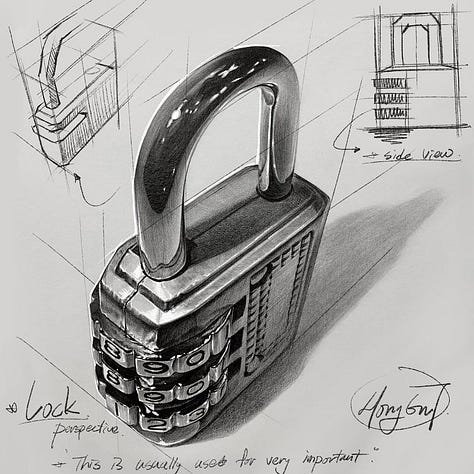 side view.
890
123
Lock.
perspective.
"This is usually used for very important."